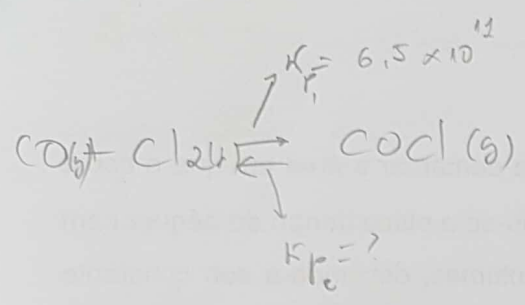 Kp₁ = 6,5 × 10¹¹
CO(g) + Cl2(g) ⇌ COCl (g)
Kp₂ = ?